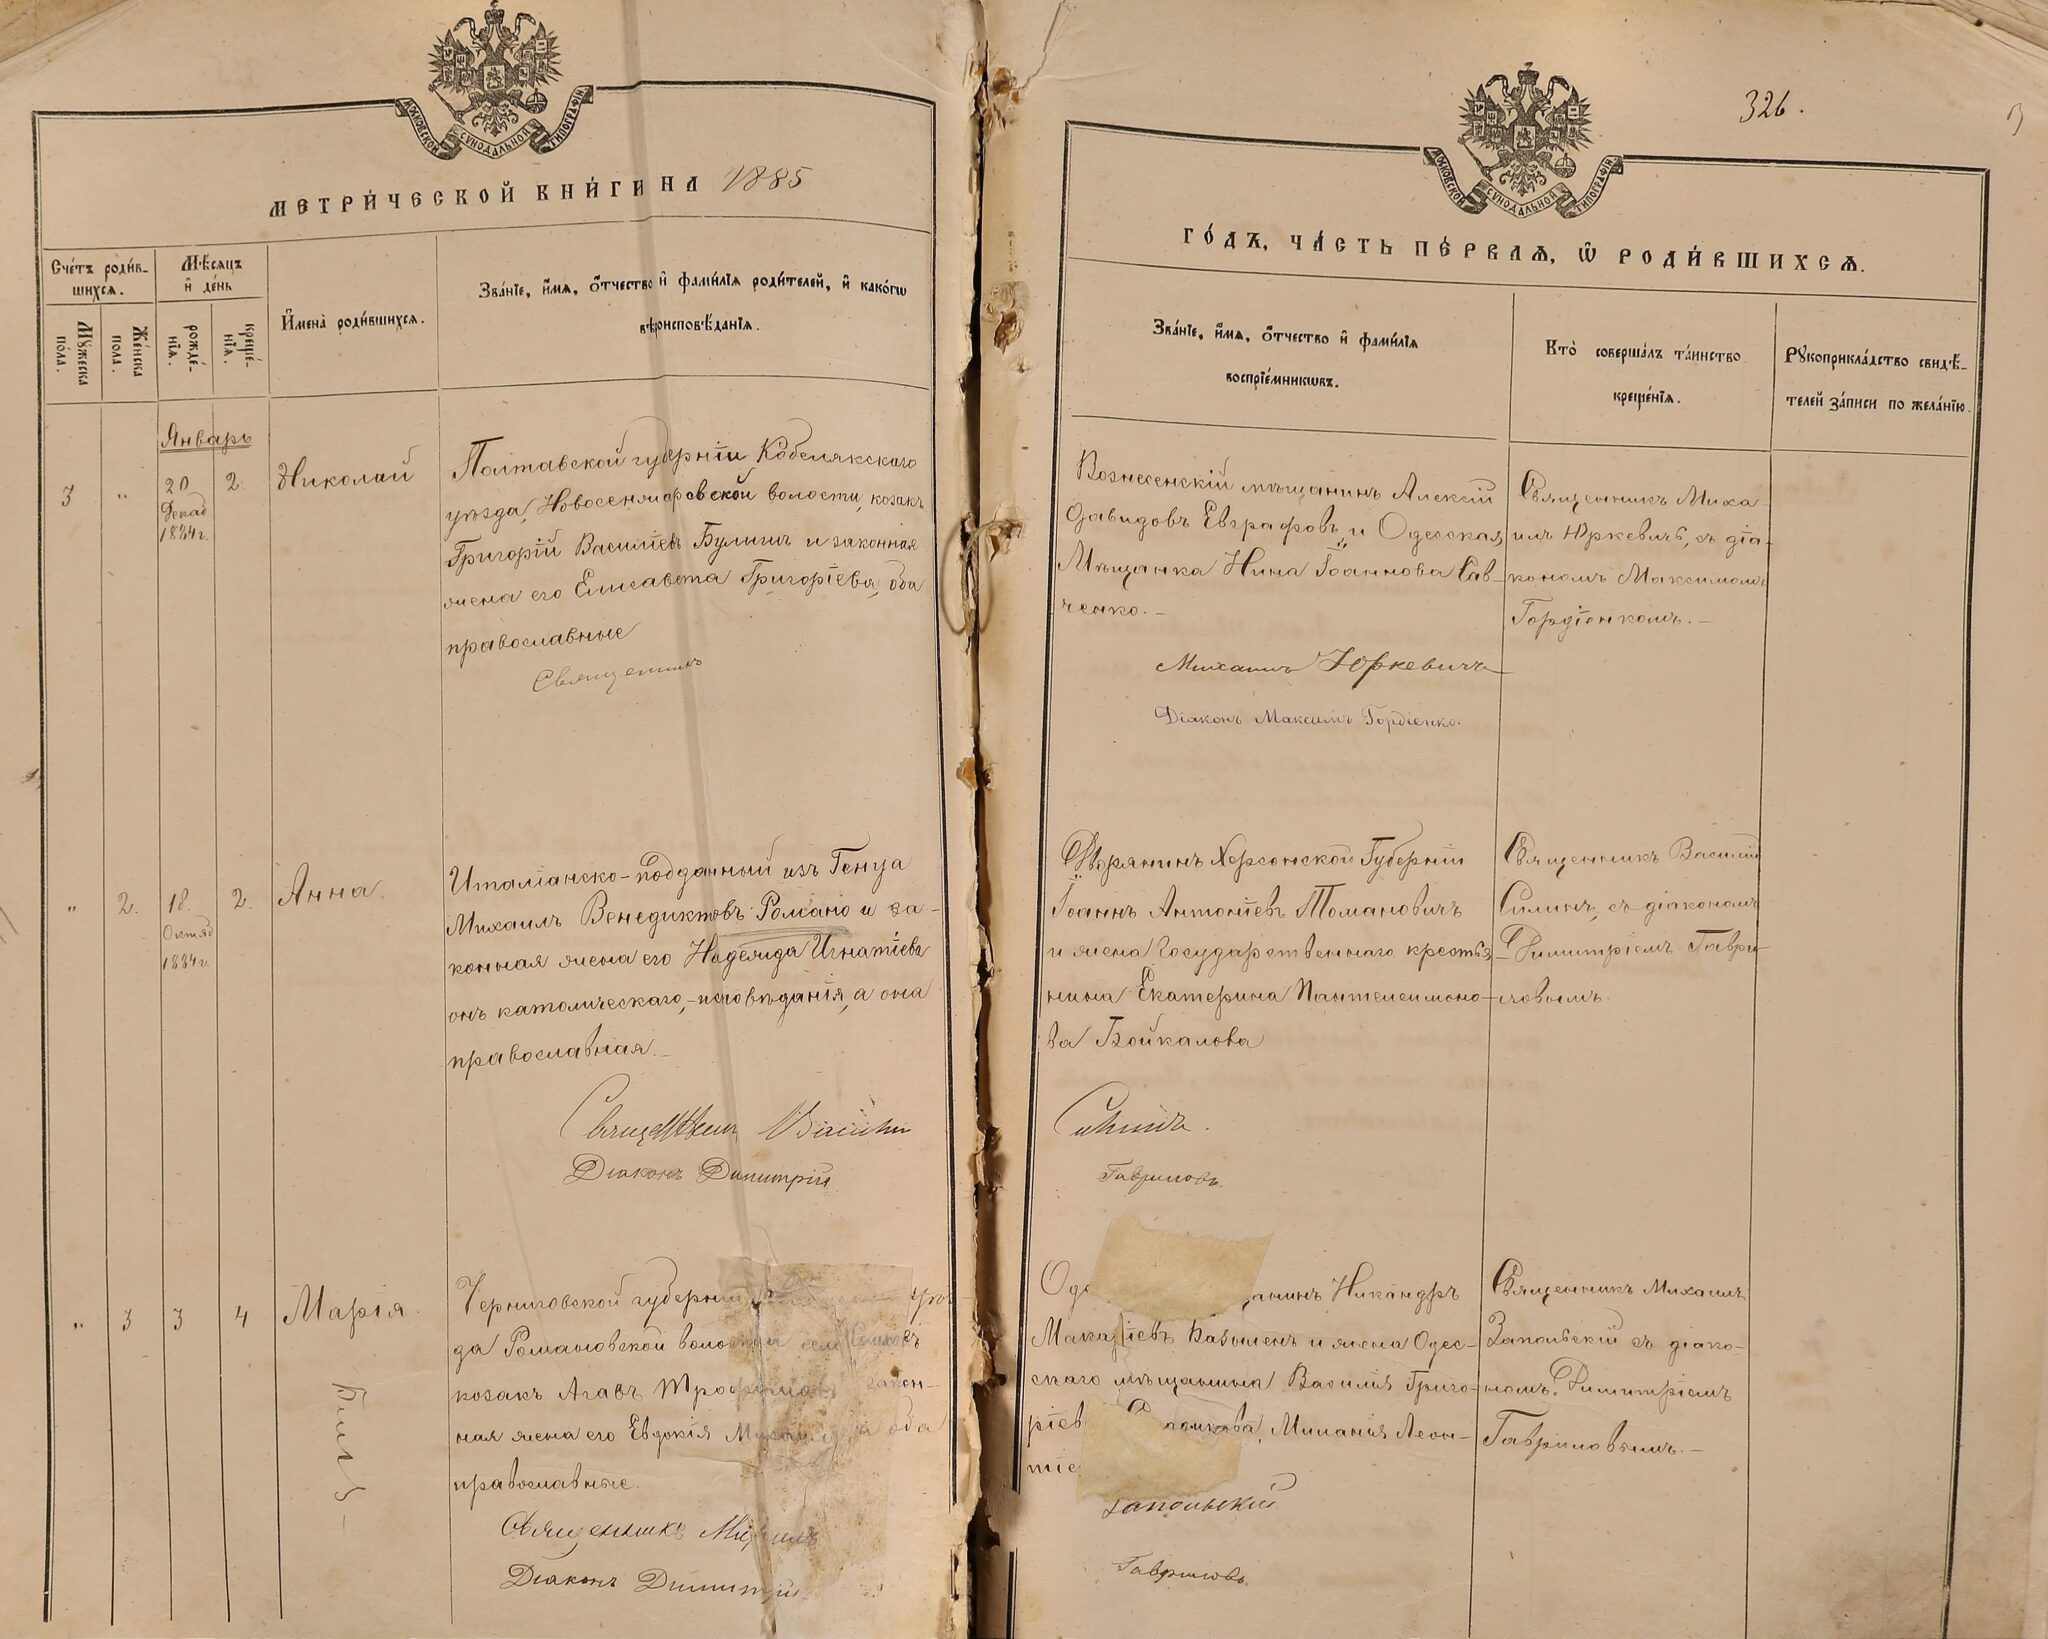 МОСКОВСКОЙ СУНОДАЛЬНОЙ ТИПОГРАФІИ
МЕТРИ́ЧЕСКОЙ КНИ́ГИ НА 1885
Сче́тъ роди́в-
шихся.
Мѣ́сяцъ
и҆ де́нь
Мꙋ́жеска
по́ла.
Же́нска
пола.
рожде́-
нїѧ.
креще́-
нїѧ.
И҆мена̀ роди́вшихсѧ.
Зва́нїе, и҆́мѧ, ѻ҆́тчество и҆ фами́лїѧ роди́телей, и҆ како́гѡ
вѣроисповѣ́данїѧ.
Январь
3 " 20 2 Николай
Декаб
1884 г.
Полтавской губерніи Кобелякского
уѣзда, Новосенжаровской волости, козакъ
Григорій Василіевъ Булышъ и законная
жена его Елисавета Григоріева, оба
православные
Священникъ
" 2. 18. 2. Анна.
Октяб
1884 г.
Италіанско-подданный изъ Генуа
Михаилъ Венедиктовъ Романо и за-
конная жена его Надежда Игнатіева
онъ католическаго, исповѣданія, а она
православная.
Священникъ Василій
Діаконъ Димитрій
" 3 3 4 Марія
Черниговской губерніи
да Романовской волости
козакъ Агавъ Трофимовъ закон-
ная жена его Евдокія оба
православные.
Священникъ Михаилъ
Діаконъ Димитрій
326.
МОСКОВСКОЙ СУНОДАЛЬНОЙ ТИПОГРАФІИ
ГО́ДЪ, ЧА́СТЬ ПЕ́РВАѦ, Ѡ҆ РОДИ́ВШИХСѦ.
Зва́нїе, и҆́мѧ, ѻ҆́тчество и҆ фами́лїѧ
воспрїе́мникѡвъ.
Кто̀ соверша́лъ та́инство
креще́нїѧ.
Рꙋкоприкла́дство свидѣ́-
телей за́писи по жела́нїю.
Вознесенскій мѣщанинъ Алексій
Давидовъ Евграфовъ и Одесская
Мѣщанка Нина Іоаннова Сав-
ченко.-
Священникъ Миха-
илъ Юркевичъ, съ діа-
кономъ Максимомъ
Гордіенкомъ.-
Михаилъ Юркевичъ
Діаконъ Максимъ Гордіенко.
Дворянинъ Херсонской Губерніи
Іоаннъ Антоніевъ Томановичъ
и жена Государственнаго крестья-
нина Екатерина Пантелеимоно-
ва Бойкалова
Священникъ Василій
Силинъ, съ діакономъ
Димитріемъ Гаври-
ловымъ.
Силинъ.
Гавриловъ.
Никандръ
Макаріевъ и жена Одес-
скаго мѣщанина Василія Григо-
Миланія Леон-
Священникъ Михаилъ
Запольскій съ діако-
номъ Димитріемъ
Гавриловымъ.-
Запольскій
Гавриловъ.